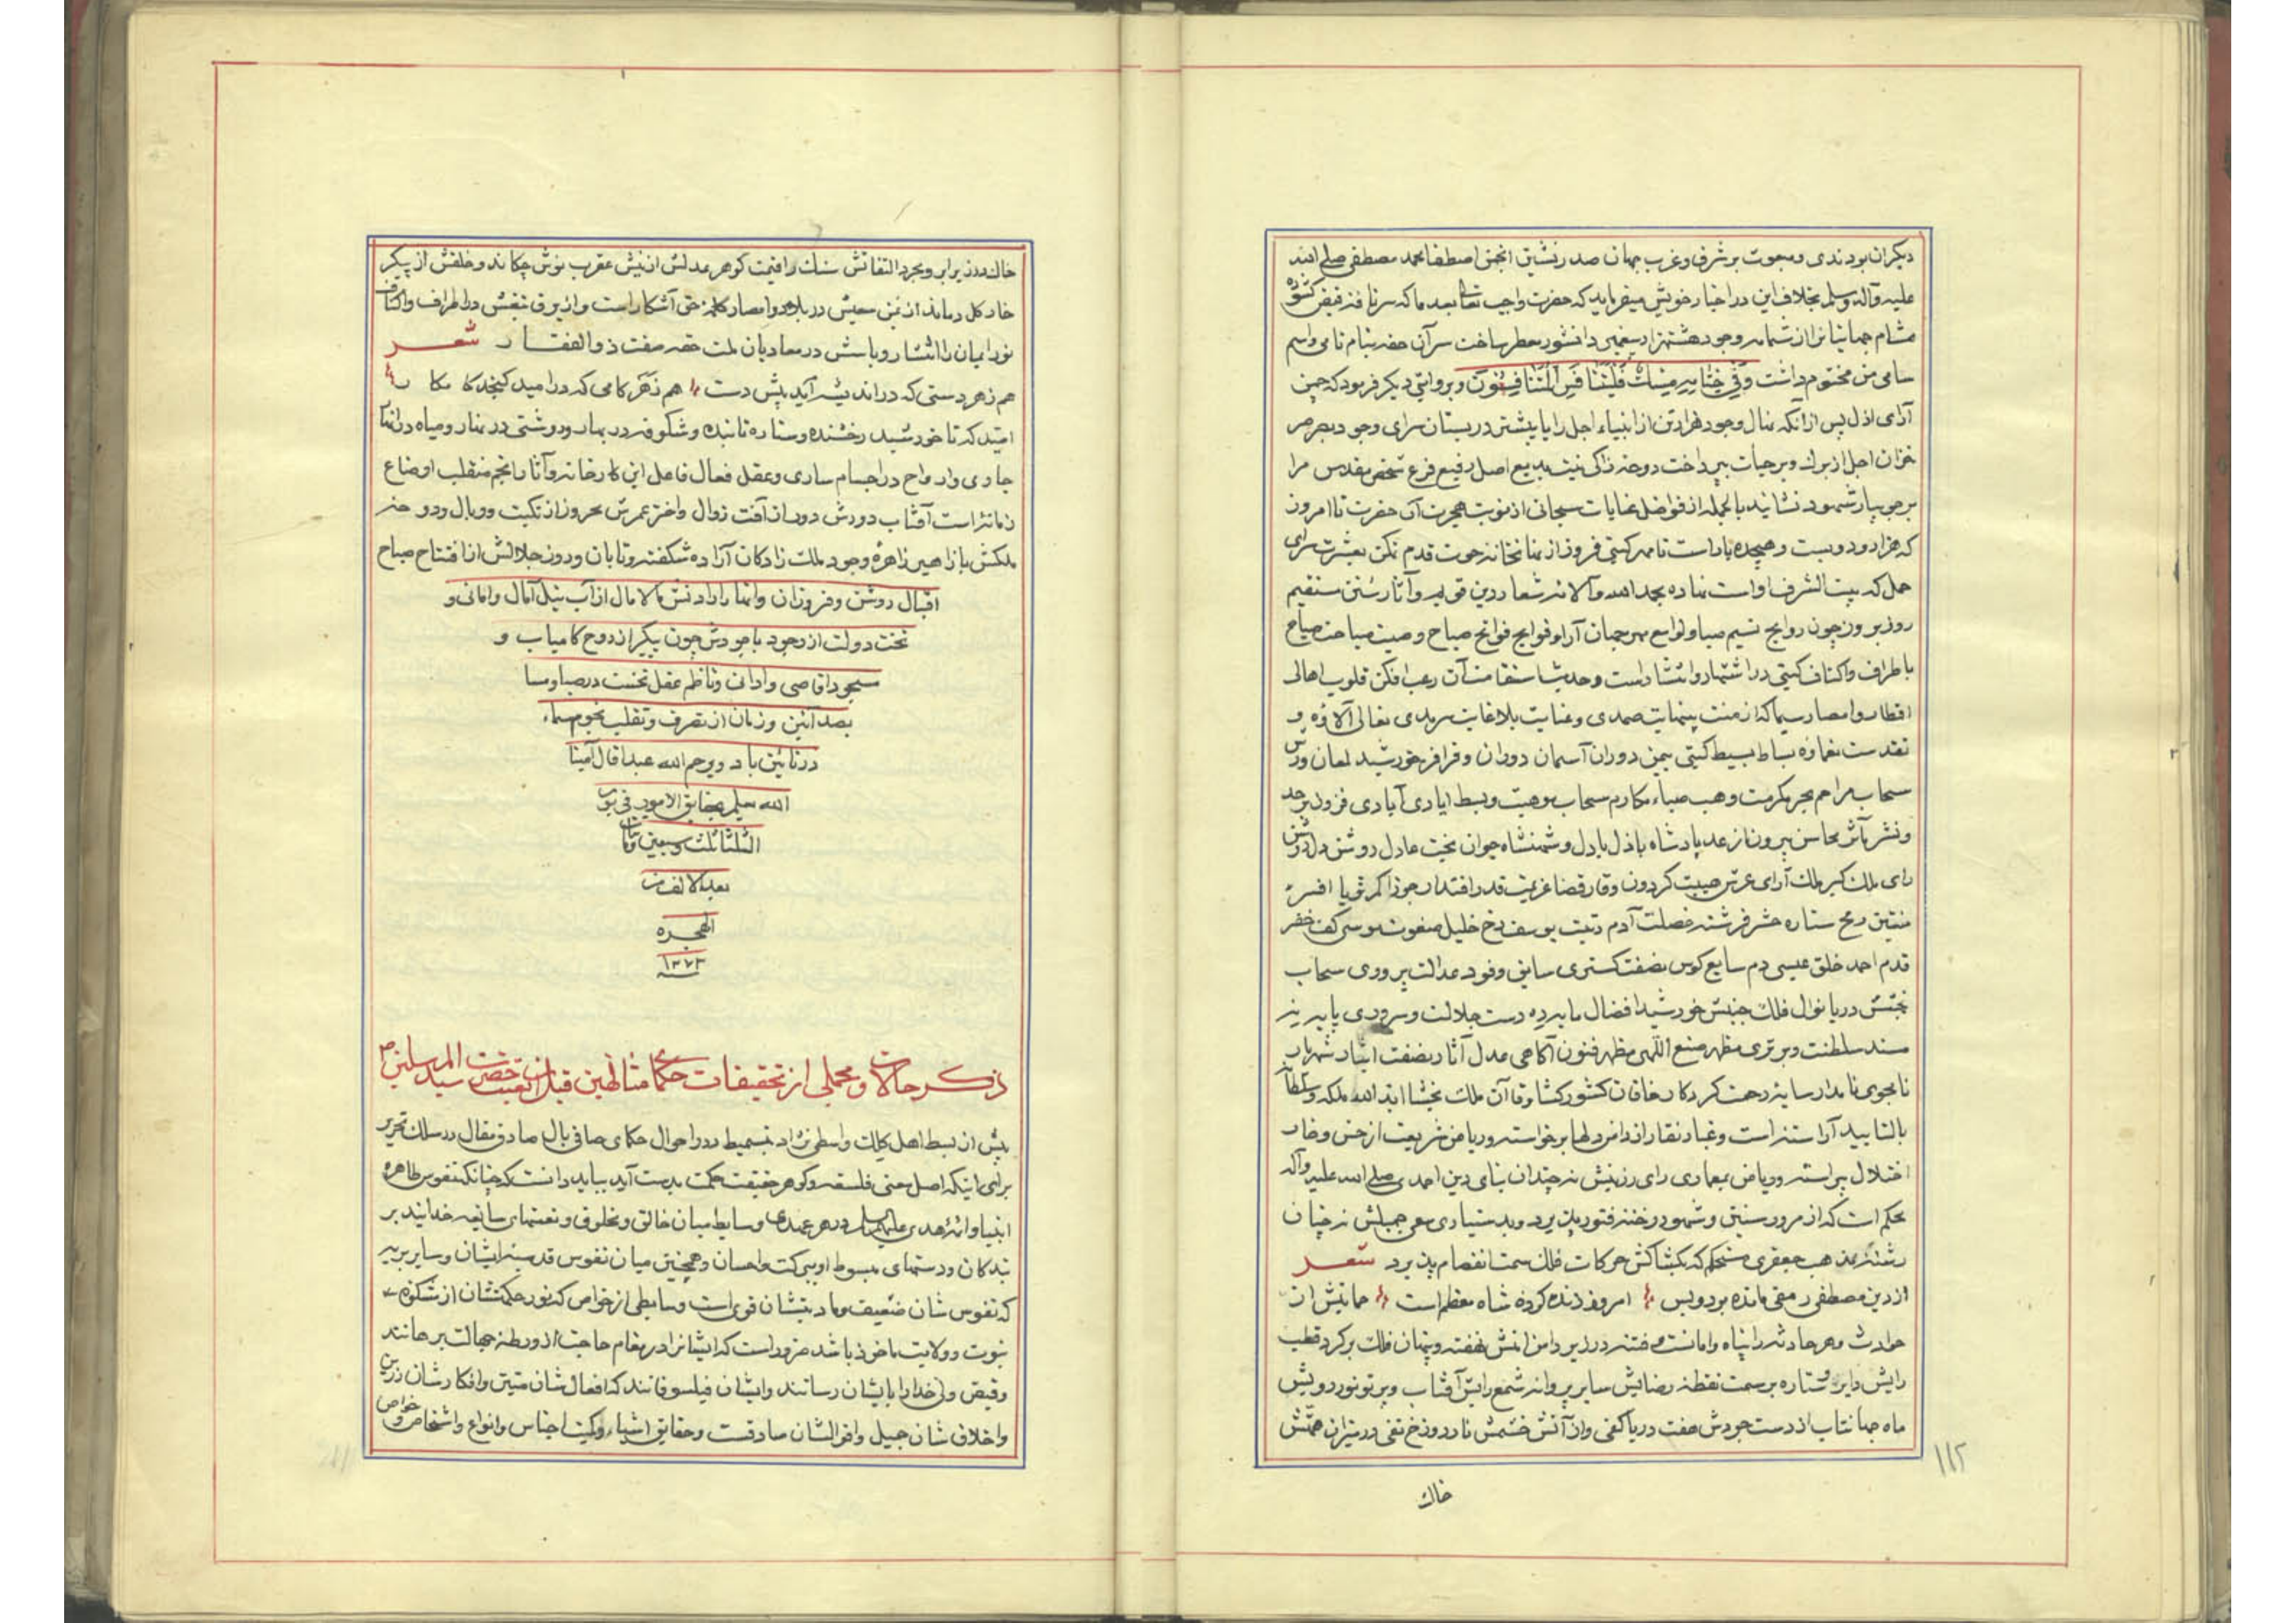 دیکران بودندی و مبعوث بر شرق و غرب جهان صدرنشین انجمن اصطفا محمد مصطفی صلی الله
علیه وآله وسلم بخلاف این در اخبار خویش میفرماید که حضرت واجب تعالی بعد ما که سرنافه فیض کشوده
مشام جهانیانرا از شمامه وجود هشتهزار پیغمبر دانشور معطر ساخت سر آن حقه بنام نامی واسم
سامی من مختوم داشت وَفی خِتامِهِ مِسْكٌ فَلْیَتَنافَسِ الْمُتَنافِسُونَ وبروایتی دیکر فرمود که چمن
آرای ازل پس از آنکه نهال وجود هزار تن از انبیاء اجل را یا بیشتر در بستان سرای وجود بصرصر
خزان اجل از برک وبر حیات بپرداخت دوحه زاکی نیت بدیع اصل رفیع فرع شخص مقدس مرا
بر جویبار شهود نشانید بالجمله از فواضل عنایات سبحانی از نوبت هجرت آن حضرت تا امروز
که هزار ودویست و هیجده بار است تا مهر کیتی فروز از نهانخانه حوت قدم تمکن بعشرت سرای
حمل که بیت الشرف اواست نهاده بحمد الله وآلائه شعار دین قویم وآثار سنن مستقیم
روز بروز چون روایح نسیم صبا ولوامع مهر جهان آرا وفوایح فواتح صباح وصیت صباحت صباح
باطراف واکناف کیتی در اشتهار وانتشار است وحدیث استقامت آن رعب افکن قلوب اهالی
اقطار وامصار سیما که از منت بینهایت صمدی وعنایت بلاغایت سرمدی تعالی آلاؤه و
تقدست نعماؤه بساط بسیط کیتی بیمن دوران آسمان دوران وفر افسر خورشید لمعان ورس
سحاب مراحم بحر مکرمت وهب صباء مکارم سحاب موهبت وبسط ایادی آبادی فزون برحد
ونشر مآثر محاسن بیرون از عد پادشاه باذل بادل وشهنشاه جوان بخت عادل روشن دل روشن
رای ملک کیر ملک آرای عرش هیبت کردون وقار قضا عزیمت قدر اقتدار جوزا کمر ثریا افسر
تنین رمح ستاره حشر فرشته خصلت آدم رتبت یوسف رخ خلیل صفوت موسی کف خضر
قدم احمد خلق عیسی دم سامع کوس نصفت کستری سابق وفود عدالت پروری سحاب
بخشش دریا نوال فلک جنبش خورشید افضال مایه ده دست جلالت وسروری پایه نه
مسند سلطنت وبرتری مظهر صنع اللهی مظهر فنون آکاهی عدل آثار نصفت انبار شهریار
نامجوی نامدار سایه رحمت کردکار خاقان کشور کشا وقاآن ملک بخشا اید الله ملکه وسلطانه
بالتایید آراسته است وغبار نقار از دامن دلها برخواسته وریاض شریعت از خس وخار
اختلال پیراسته وریاض بمعماری رای رزینش نه چندان بنای دین احمدی صلی الله علیه وآله
محکم است که از مرور سنین وشهور رخنه فتور پذیرد وبدستیاری سعی جمیلش نه چنان
رشته مذهب جعفری مستحکم که بکشاکش حرکات فلک سمت انفصام پذیرد شعر
از دین مصطفی رمقی مانده بود وبس امروز زنده کرده شاه معظم است حمایتش از
حوادث وهر حادثه را پناه وامانست وفتنه در زیر دامن امنش نهفته وپنهان فلک برکرد قطب
رایش دایر وستاره بر سمت نقطه رضایش سایر پروانه شمع رایش آفتاب وپرتو نور رویش
ماه جهانتاب از دست جودش صفت دریا کفی واز آتش خشمش نار دوزخ تفی در میزان همتش
خاک
۱۱۲
خاک وزر برابر وبجرد التفاتش سنک را قیمت کوهر عدلش از نیش عقرب نوش چکاند وخلقش از پیکر
خار کل دماند از یمن سعیش در بلاد وامصار کلمه حق آشکار است واز برق تیغش در اطراف واکناف
نور ایمان را انتشار وباسش در معادیان ملت حقه صفت ذوالفقار شعر
هم زهر دستی که در اندیشه آید پیش دست هم زهر کامی که در امید کنجد کامکار
امید که تا خورشید رخشنده وستاره تابنده وشکوفه در بهار ودوشتی در نهار ومیاه در انهار
جاری وارواح در اجسام ساری وعقل فعال فاعل این کارخانه وآثار انجم منقلب اوضاع
زمانه است آفتاب دورش دور از آفت زوال واختر عمرش محروز از نکبت ووبال ودوحه
ملکش با ازاهیر زاهره وجود ملک زادکان آزاده شکفته وتابان وروز جلالش از افتتاح صباح
اقبال روشن وفروزان وانهار ارادتش مالامال از آب نیل آمال وامانی و
تخت دولت از وجود باجودش چون پیکر از روح کامیاب و
مسجود اقاصی وادانی وناظم عقل نخست در صبا ومسا
بصد آئین وزبان از تصرف وتقلب نجوم سماء
در تائین باد ویرحم الله عبدا قال آمینا
الله یعلم بحقایق الامور فی یوم
الثلثا ثلث وسبعین ومأتان
بعد الالف من
الهجره
۱۲۷۳
ذکر حالات ومجملی از تحقیقات حکمای متالهین قبل از بعثت حضرت سید المرسلین ص
پیش از بسط اهل کیالت واسطی نژاد بتسمیط درر احوال حکمای صافی بال صادق مقال در سلک تحریر
برای اینکه اصل معنی فلسفه وکوهر حقیقت حکمت بدست آید بباید دانست که چنانکه نفوس طاهره
انبیا وائمه هدی علیهم السلام در هر عهدی وسایط میان خالق ومخلوق ونعمتهای سابغه خدایند بر
بندکان ودستهای مبسوط او ببرکت واحسان وهمچنین میان نفوس قدسیه ایشان وسایر بریه
که نفوس شان ضعیف ومادیتشان قوی است وسایطی از خواص که نور حکمتشان از مشکوة
نبوت وولایت ماخوذ باشد ضرور است که ایشانرا در مقام حاجت از ورطه جهالت برهانند
وفیض ولی خدا را بایشان رسانند وایشان فیلسوفانند که افعال شان متین وافکارشان رزین
واخلاق شان جمیل واقوالشان صادقست وحقایق اشیاء وکیت اجناس وانواع واشخاص وخواص